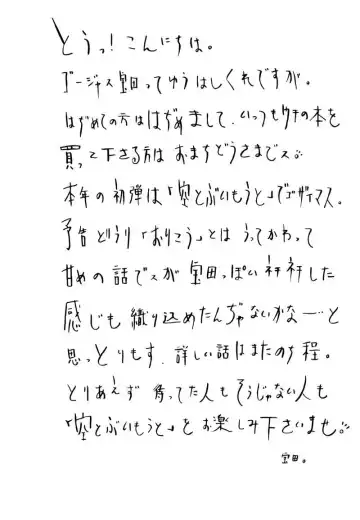 どうっ！こんにちは。
ゴージャス宝田ってゆうはしくれですが。
はぢめての方ははぢめまして、いつもウチの本を
買って下さる方はおまちどうさまでス。
本年の初弾は「空とぶいもうと」でゴザイマス。
予告どうり「おりこう」とはうってかわって
甘めの話でスが宝田っぽいネチネチした
感じも織り込めたんぢゃないかな…と
思っとりもす、詳しい話はまたのち程。
とりあえず待ってた人もそうじゃない人も
「空とぶいもうと」をお楽しみ下さいませ。
宝田。